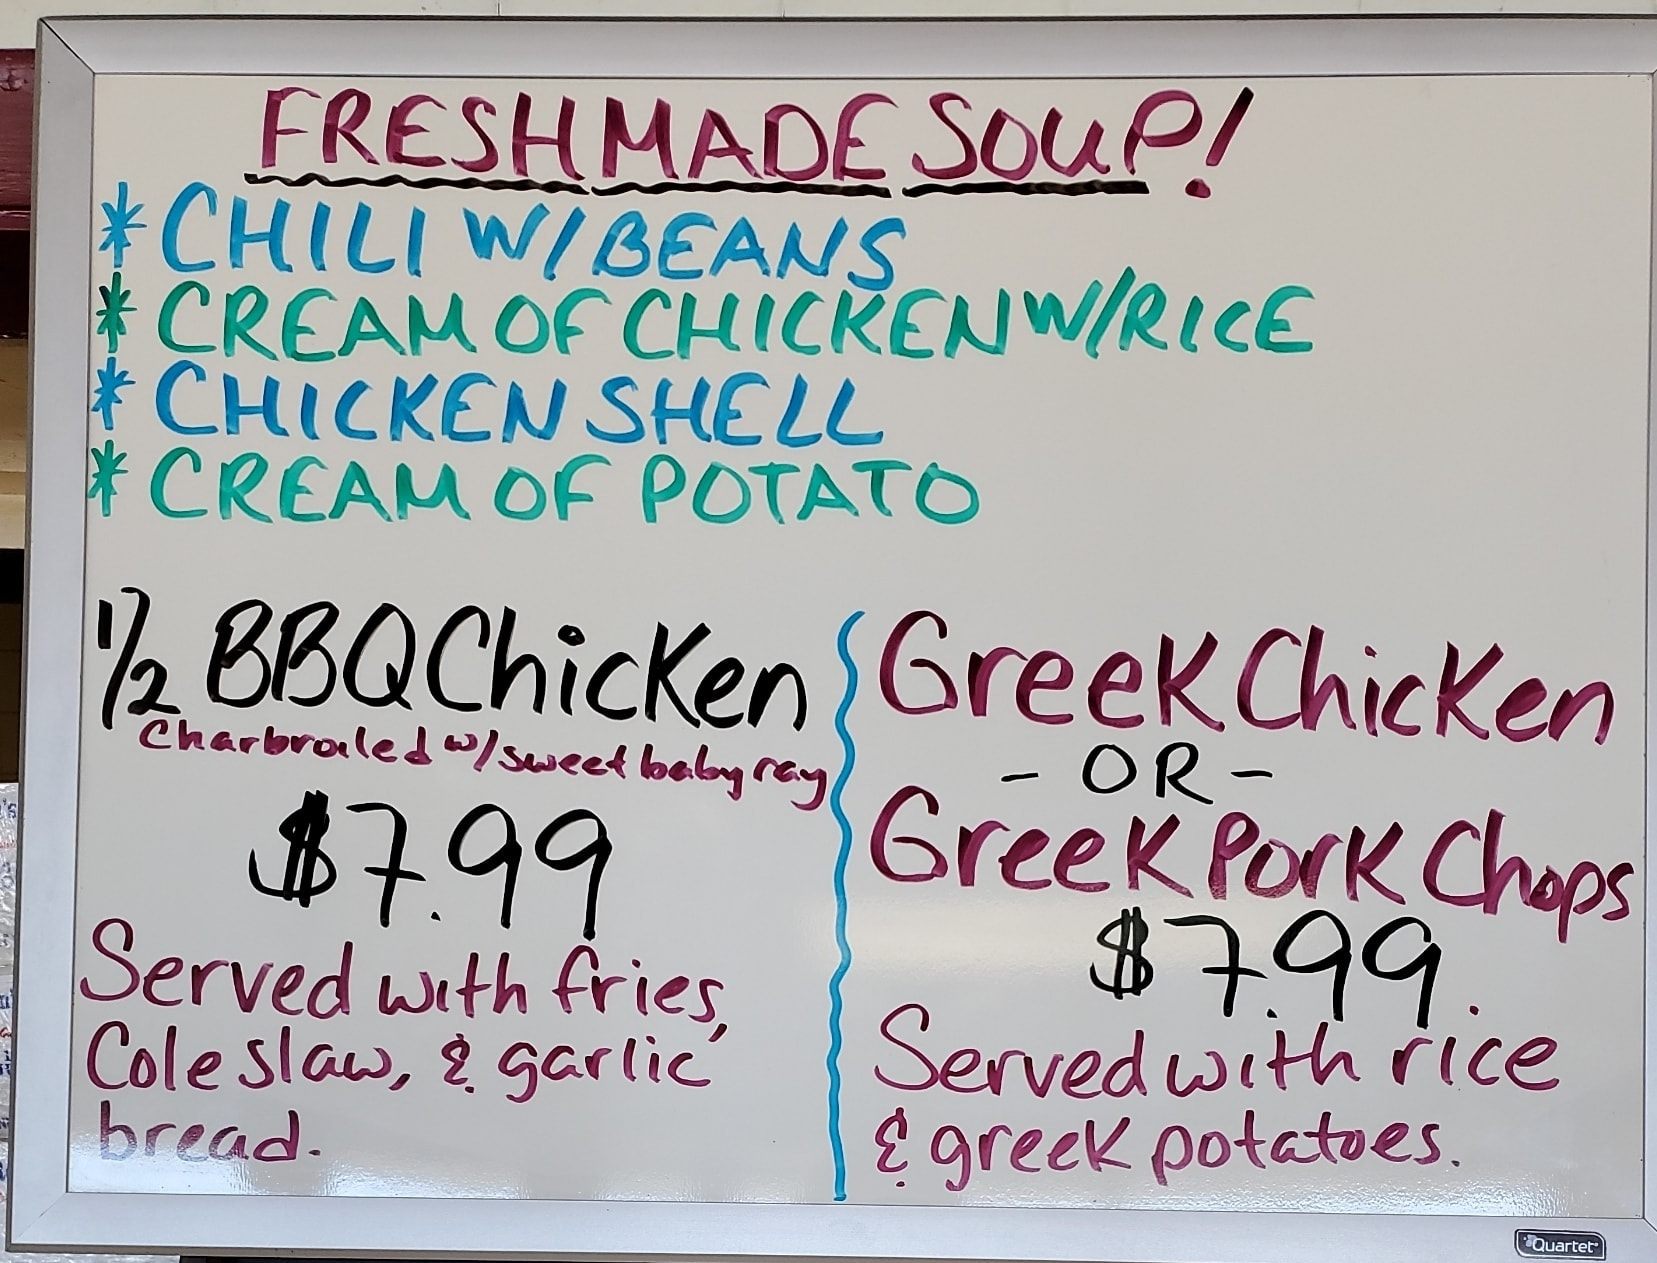 FRESH MADE SOUP!
* CHILI W/ BEANS
* CREAM OF CHICKEN W/ RICE
* CHICKEN SHELL
* CREAM OF POTATO
1/2 BBQ Chicken
Charbroiled w/ sweet baby ray
$7.99
Served with fries,
Cole slaw, & garlic
bread.
Greek Chicken
- OR -
Greek Pork Chops
$7.99.
Served with rice
& greek potatoes.
Quartet